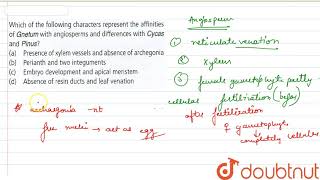 Which of the following characters represent the affinities
of Gnetum with angiosperms and differences with Cycas
and Pinus?
(a) Presence of xylem vessels and absence of archegonia
(b) Perianth and two integuments
(c) Embryo development and apical meristem
(d) Absence of resin ducts and leaf venation
Angiosperm
① reticulate venation
② xylem
③ female gametophyte partly
cellular fertilisation (before)
after fertilization
♀ gametophyte
↳ completely cellular
archaegonia -nt
free nuclei → act as egg
doubtnut